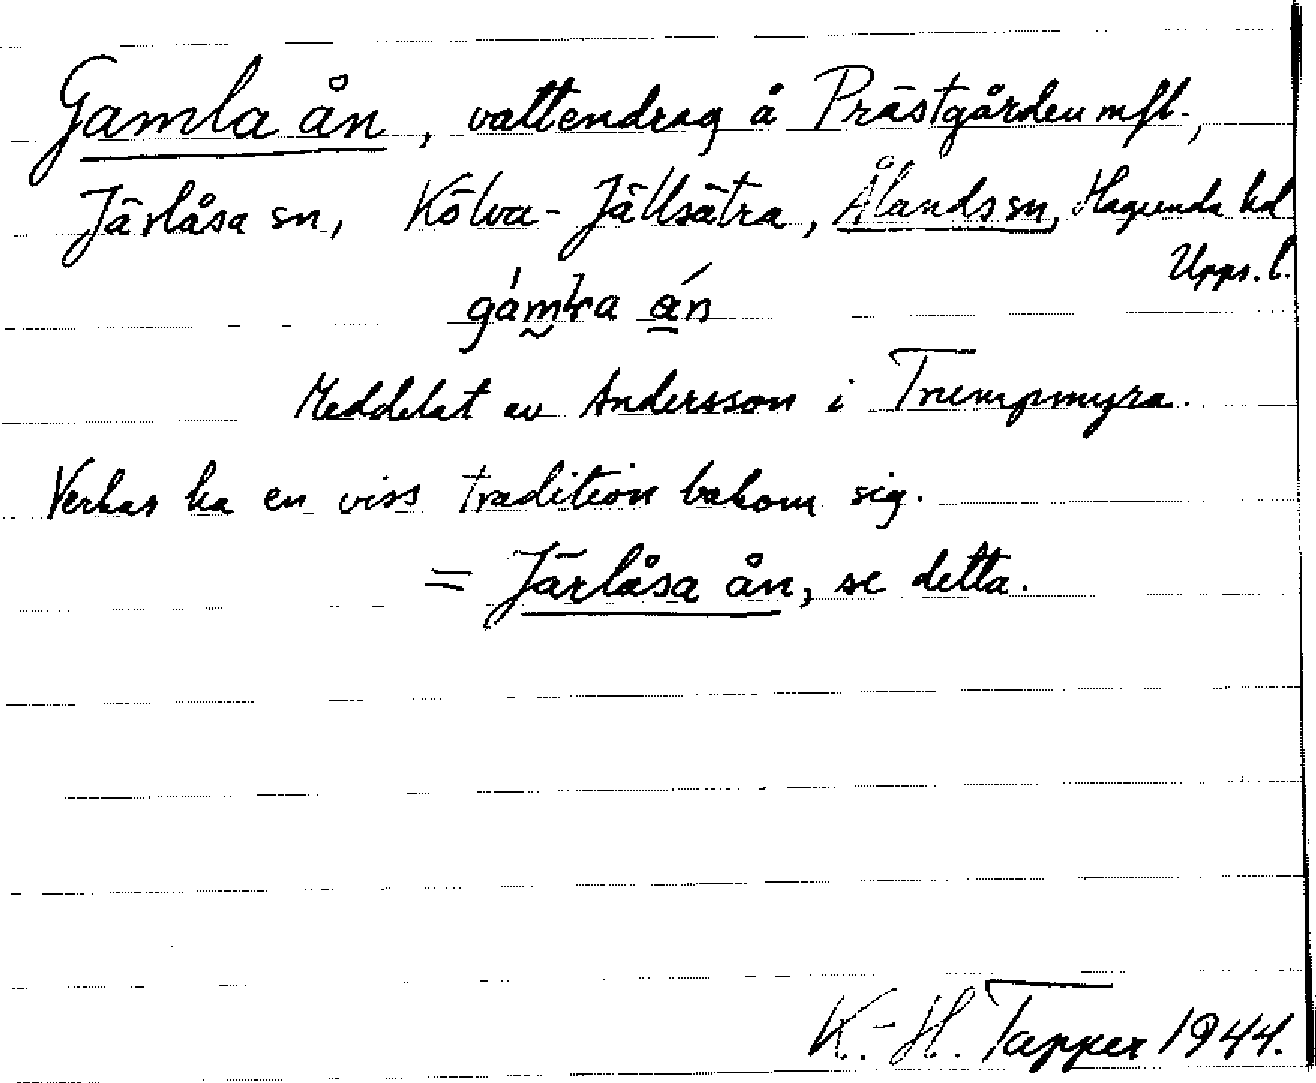 Gamla ån, vattendrag å Prästgården mfl.,
Järlåsa sn, Kölva-Jällsätra, Ålands sn, Hagunda hd
Upps. l.
Meddelat av Andersson i Trumpmyra.
Verkar ha en viss tradition bakom sig.
= Järlåsa ån, se detta.
K.-H. Tapper 1944.